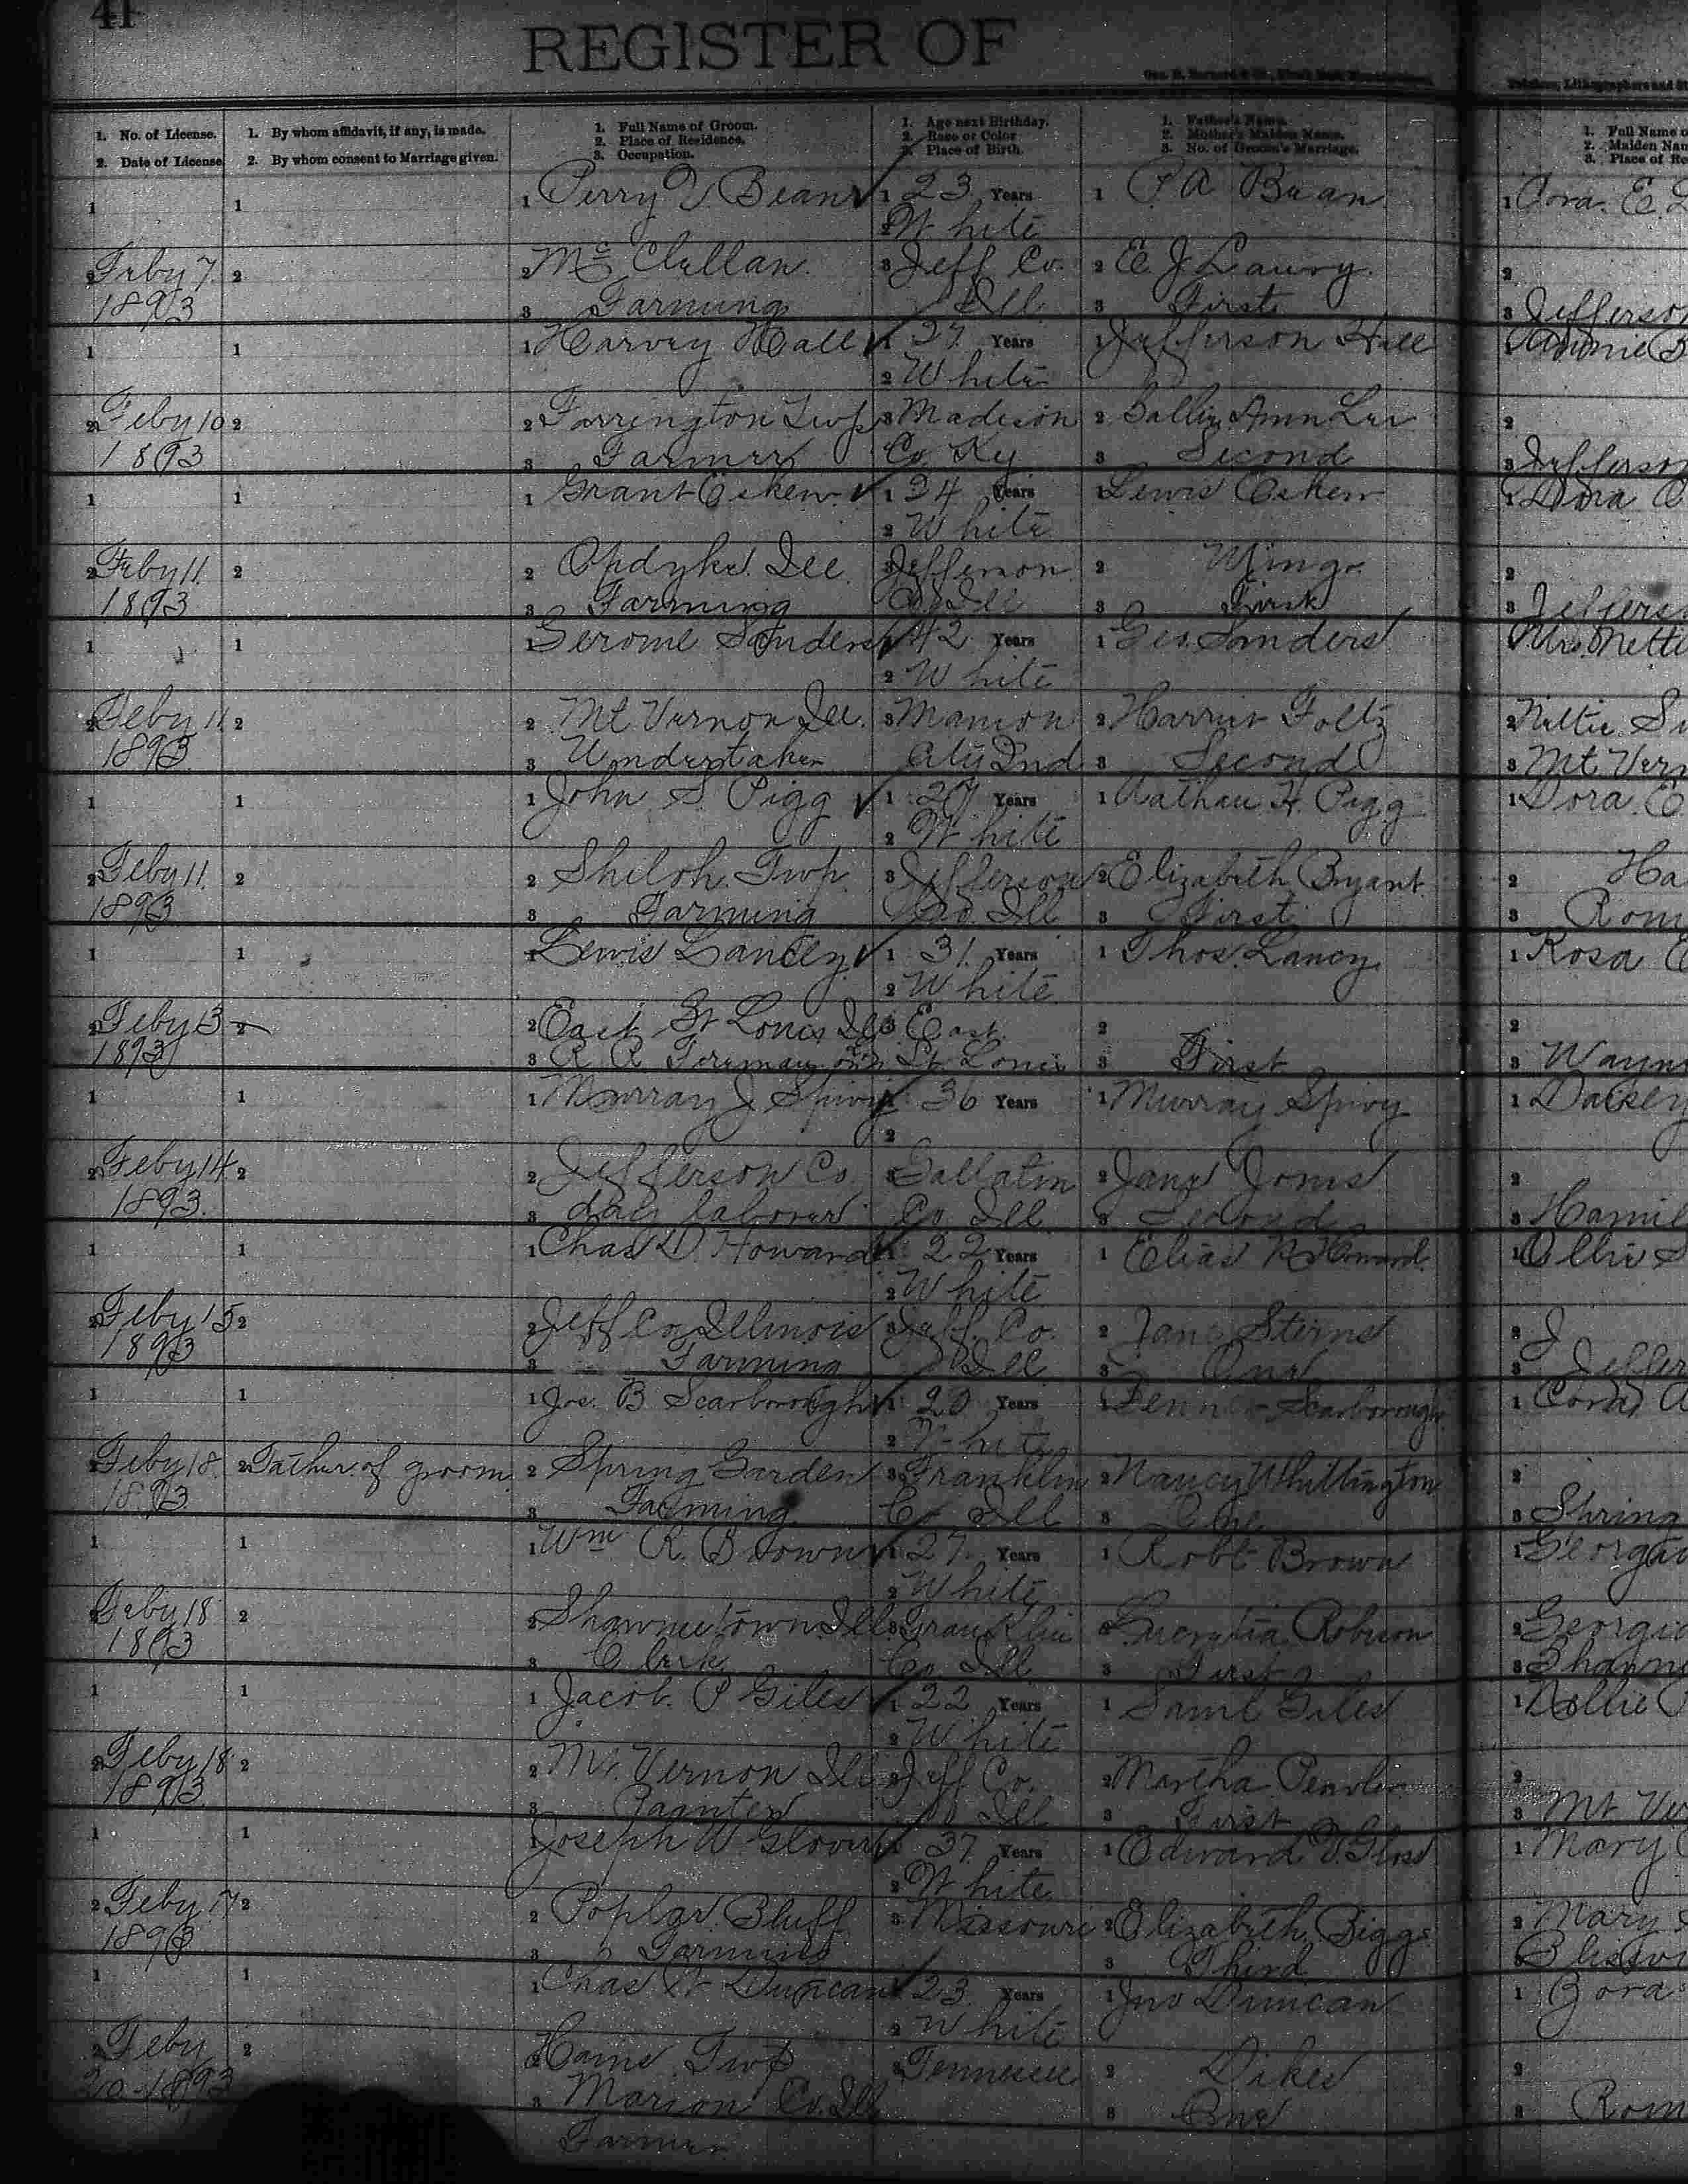 41
REGISTER OF
1. No. of License. 1. By whom affidavit, if any, is made. 1. Full Name of Groom. 1. Age next Birthday. 1. Father's Name. 1. Full Name o
2. Place of Residence. 2. Race or Color 2. Mother's Maiden Name. 2. Maiden Nam
2. Date of License. 2. By whom consent to Marriage given. 3. Occupation. 3. Place of Birth. 3. No. of Groom's Marriage. 3. Place of Re
1 1 1 Perry Bean 1 23 Years 1 P A Bean 1 Cora E.
2 White
2 Feby 7 2 2 Mc Clellan 3 Jeff Co. 2 E J Lawry 2
1893 3 Farming Ill 3 First 3 Jefferson
1 1 1 Harvey Hall 1 27 Years 1 Jefferson Hall 1 Annie B
2 White
2 Feby 10 2 2 Farrington Twp 3 Madison 2 Sallie Ann Lee 2
1893 3 Farmer Co Ky 3 Second 3 Jefferson
1 1 1 Grant 1 24 Years 1 Lewis 1 Dora
2 White
2 Feby 11 2 2 Opdyke Ill 3 Jefferson 2 Wingo 2
1893 3 Farming Co Ill 3 First 3 Jeffers
1 1 1 Gerome Sanders 1 42 Years 1 Geo. Sanders 1 Mrs. Netti
2 White
2 Feby 11 2 2 Mt. Vernon Ill. 3 Marion 2 Harriet Foltz 2 Nettie
1893 3 Undertaker City Ind 3 Second 3 Mt. Vern
1 1 1 John S. Pigg 1 27 Years 1 Nathan H. Pigg 1 Dora. E
2 White
2 Feby 11 2 2 Shiloh Twp 3 Jefferson 2 Elizabeth Bryant 2 Ha
1893 3 Farming Co. Ill 3 First 3 Rom
1 1 1 Lewis Lancey 1 31 Years 1 Thos. Lancy 1 Rosa E
2 White
2 Feby 13 2 2 East St Louis Ill 3 East 2 2
1893 3 R R Foreman St Louis 3 First 3 Wayn
1 1 1 Murray J Spivy 1 36 Years 1 Murray Spivy 1 Daisey
2
2 Feby 14 2 2 Jefferson Co 3 Gallatin 2 Jane Jones 2
1893. 3 day laborer Co Ill 3 Second 3 Hamil
1 1 1 Chas D. Howard 1 22 Years 1 Elias Howard 1 Ollie S
2 White
2 Feby 15 2 2 Jeff Co. Illinois 3 Jeff. Co. 2 Jane Sterns 2 J
1893 3 Farming Ill 3 One 3 Jeffer
1 1 1 Jos. B Scarborough 1 20 Years 1 Scarborough 1 Cora A
2 White
2 Feby 18 2 Father of groom 2 Spring Garden 3 Franklin 2 Nancy Whittington 2
1893 3 Farming Co Ill 3 One 3 Spring
1 1 1 Wm R. Brown 1 27 Years 1 Robt Brown 1 Georgia
2 White
2 Feby 18 2 2 Shawneetown Ill 3 Franklin 2 Lucretia Robison 2 Georgia
1893 3 Clerk Co Ill 3 First 3 Shawne
1 1 1 Jacob. P Giles 1 22 Years 1 Saml Giles 1 Nellie
2 White
2 Feby 18 2 2 Mt. Vernon Ill 3 Jeff Co. 2 Martha 2
1893 3 Painter Ill 3 First 3 Mt Ver
1 1 1 Joseph W Glover 1 37 Years 1 Edward 1 Mary
2 White
2 Feby 17 2 2 Poplar Bluff 3 Missouri 2 Elizabeth Biggs 2 Mary
1893 3 Farming 3 Third 3
1 1 1 Chas Duncan 1 23 Years 1 Jno Duncan 1 Zora
2 White
2 Feby 2 2 Twp 3 Tennessee 2 Dikes 2
20-1893 3 Marion Co. Ill 3 One 3 Rom
Farmer